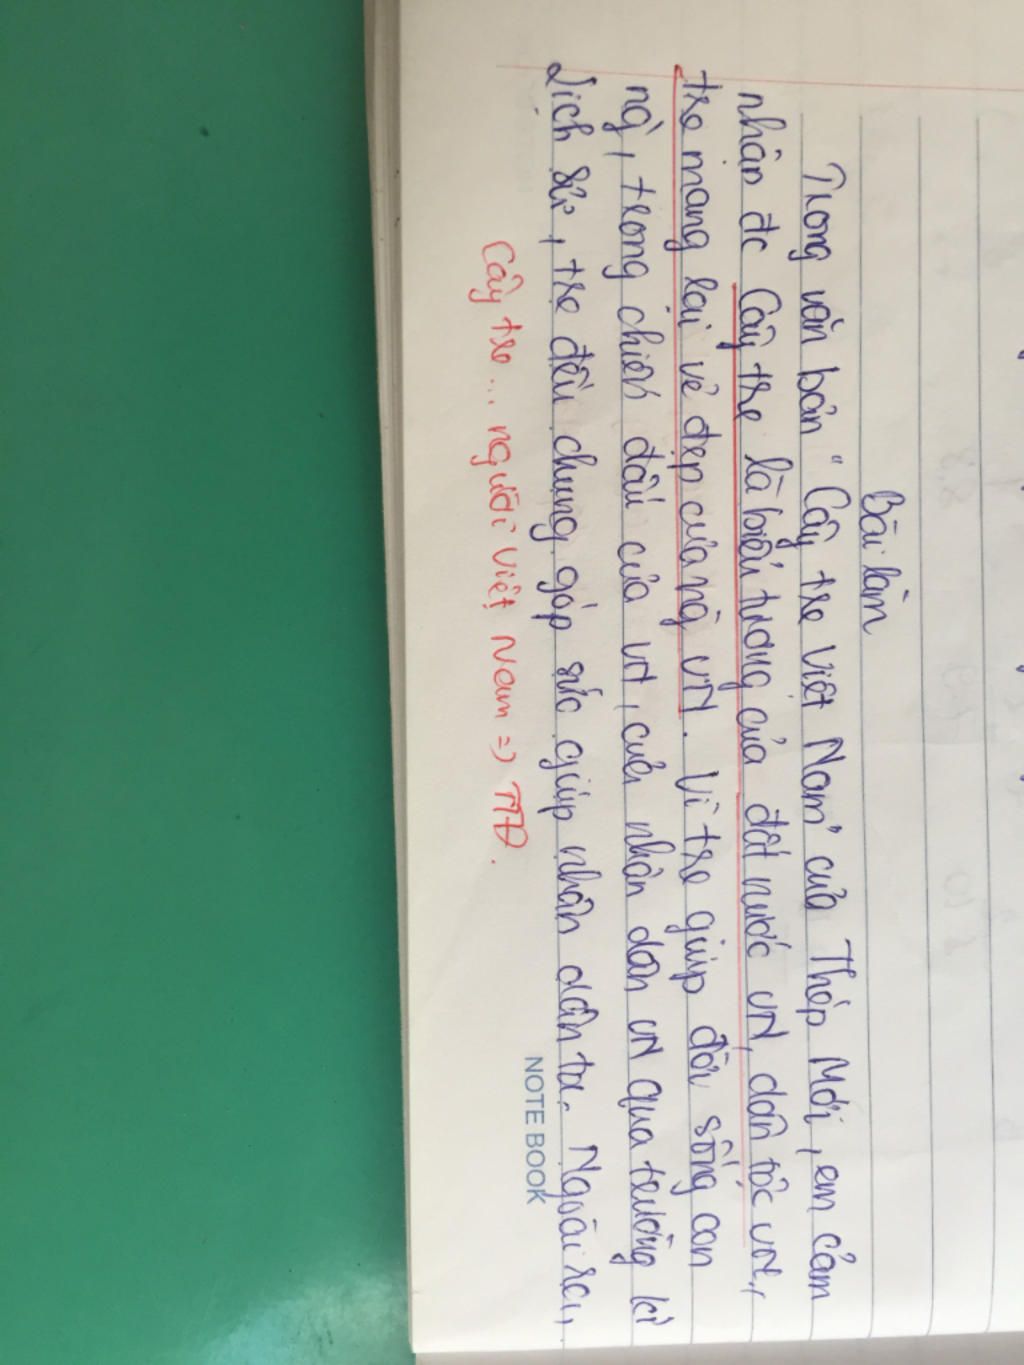 Bài làm
Trong văn bản "Cây tre Việt Nam" của Thép Mới, em cảm
nhận đc Cây tre là biểu tượng của đất nước VN, dân tộc VN,
tre mang lại vẻ đẹp của ng VN. Vì tre giúp đời sống con
ng, trong chiến đấu của VN, của nhân dân VN qua trường kì
Lịch sử, tre đều chung góp sức giúp nhân dân ta. Ngoài ra,
Cây tre... người Việt Nam => TTĐ.
NOTE BOOK